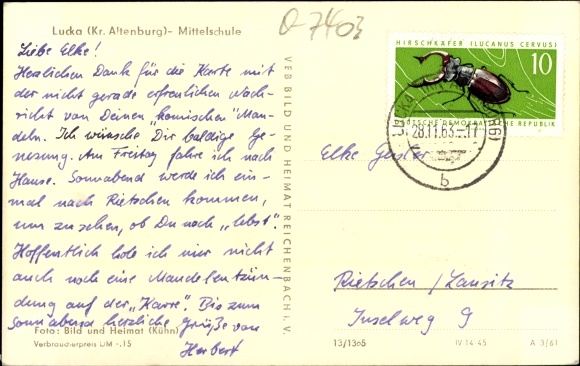 Lucka (Kr. Altenburg)- Mittelschule
Liebe Elke!
Herzlichen Dank für die Karte mit
der nicht gerade erfreulichen Nach-
richt von Deinen "komischen" Man-
deln. Ich wünsche Dir baldige Ge-
nesung. Am Freitag fahre ich nach
Hause. Sonnabend werde ich ein-
mal nach Rietschen kommen,
um zu sehen, ob Du noch "lebst".
Hoffentlich hole ich mir nicht
auch noch eine Mandelentzün-
dung auf der "Karre". Bis zum
Sonnabend herzliche Grüße von
Herbert
Foto: Bild und Heimat (Kühn)
Verbraucherpreis DM -.15
VEB BILD UND HEIMAT REICHENBACH i. V.
HIRSCHKÄFER (LUCANUS CERVUS)
10
DEUTSCHE DEMOKRATISCHE REPUBLIK
28.11.63.-17
b
Elke
Rietschen / Lausitz
Inselweg 9
13/1365
IV-14-45
A 3/61